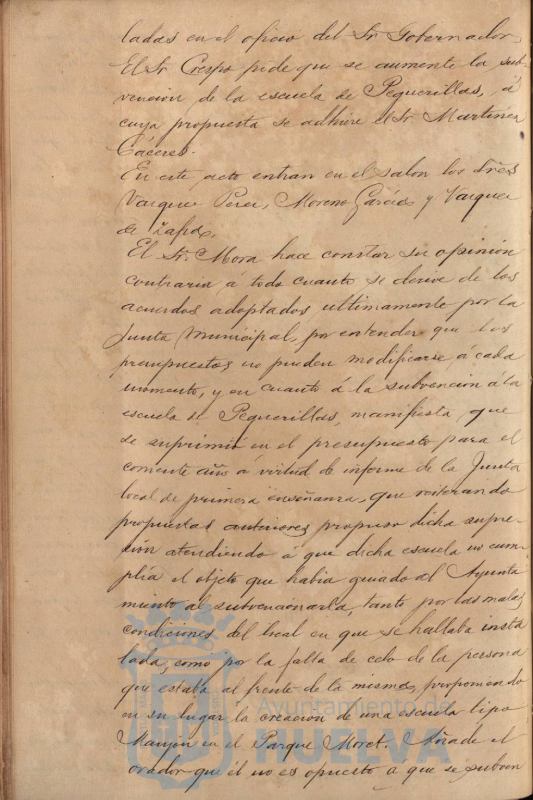 ladas en el oficio del Sr. Gobernador,
El Sr Crespo pide que se aumente la sub-
vención de la escuela de Peguerillas, á
cuya propuesta se adhiere el Sr. Martínez
Cáceres.
En este acto entran en el salon los Sres
Vazquez Perez, Moreno García y Vazquez
de Zafra.
El Sr. Mora hace constar su opinión
contraria á todo cuanto se derive de los
acuerdos adoptados ultimamente por la
Junta Municipal, por entender que los
presupuestos no pueden modificarse á cada
momento, y en cuanto á la subvencion á la
escuela de Peguerillas, manifiesta, que
se suprimió en el presupuesto para el
corriente año á virtud de informe de la Junta
local de primera enseñanza, que reiterando
propuestas anteriores propuso dicha supre-
sión atendiendo á que dicha escuela no cum-
plia el objeto que habia guiado al Ayunta
miento al subvencionarla, tanto por las malas
condiciones del local en que se hallaba insta
lada, como por la falta de celo de la persona
que estaba al frente de la misma, proponiendo
en su lugar la creación de una escuela tipo
Manjón en el Parque Moret. Añade el
orador que él no es opuesto a que se subven
Ayuntamiento de
HUELVA